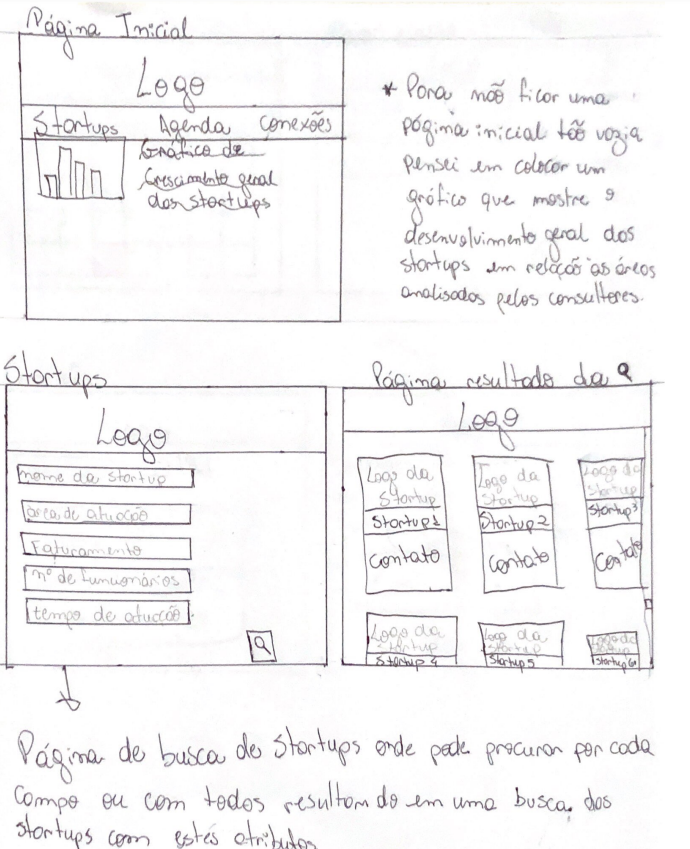 Página Inicial
Logo
Startups Agenda Conexões
Gráfico de
Crescimento geral
das startups
* Para não ficar uma
página inicial tão vazia
pensei em colocar um
gráfico que mostre o
desenvolvimento geral das
startups em relação as áreas
analisadas pelos consultores.
Startups
Logo
nome da startup
área de atuação
Faturamento
nº de funcionários
tempo de atuação
Página resultado da
Logo
Logo da
Startup
Startup1
Contato
Logo da
Startup
Startup2
Contato
Logo da
Startup
Startup3
Contato
Logo da
Startup
Startup 4
Logo da
Startup
Startup5
Logo da
Startup
Startup6
Página de busca de Startups onde pode procurar por cada
campo ou com todos resultando em uma busca das
startups com estes atributos